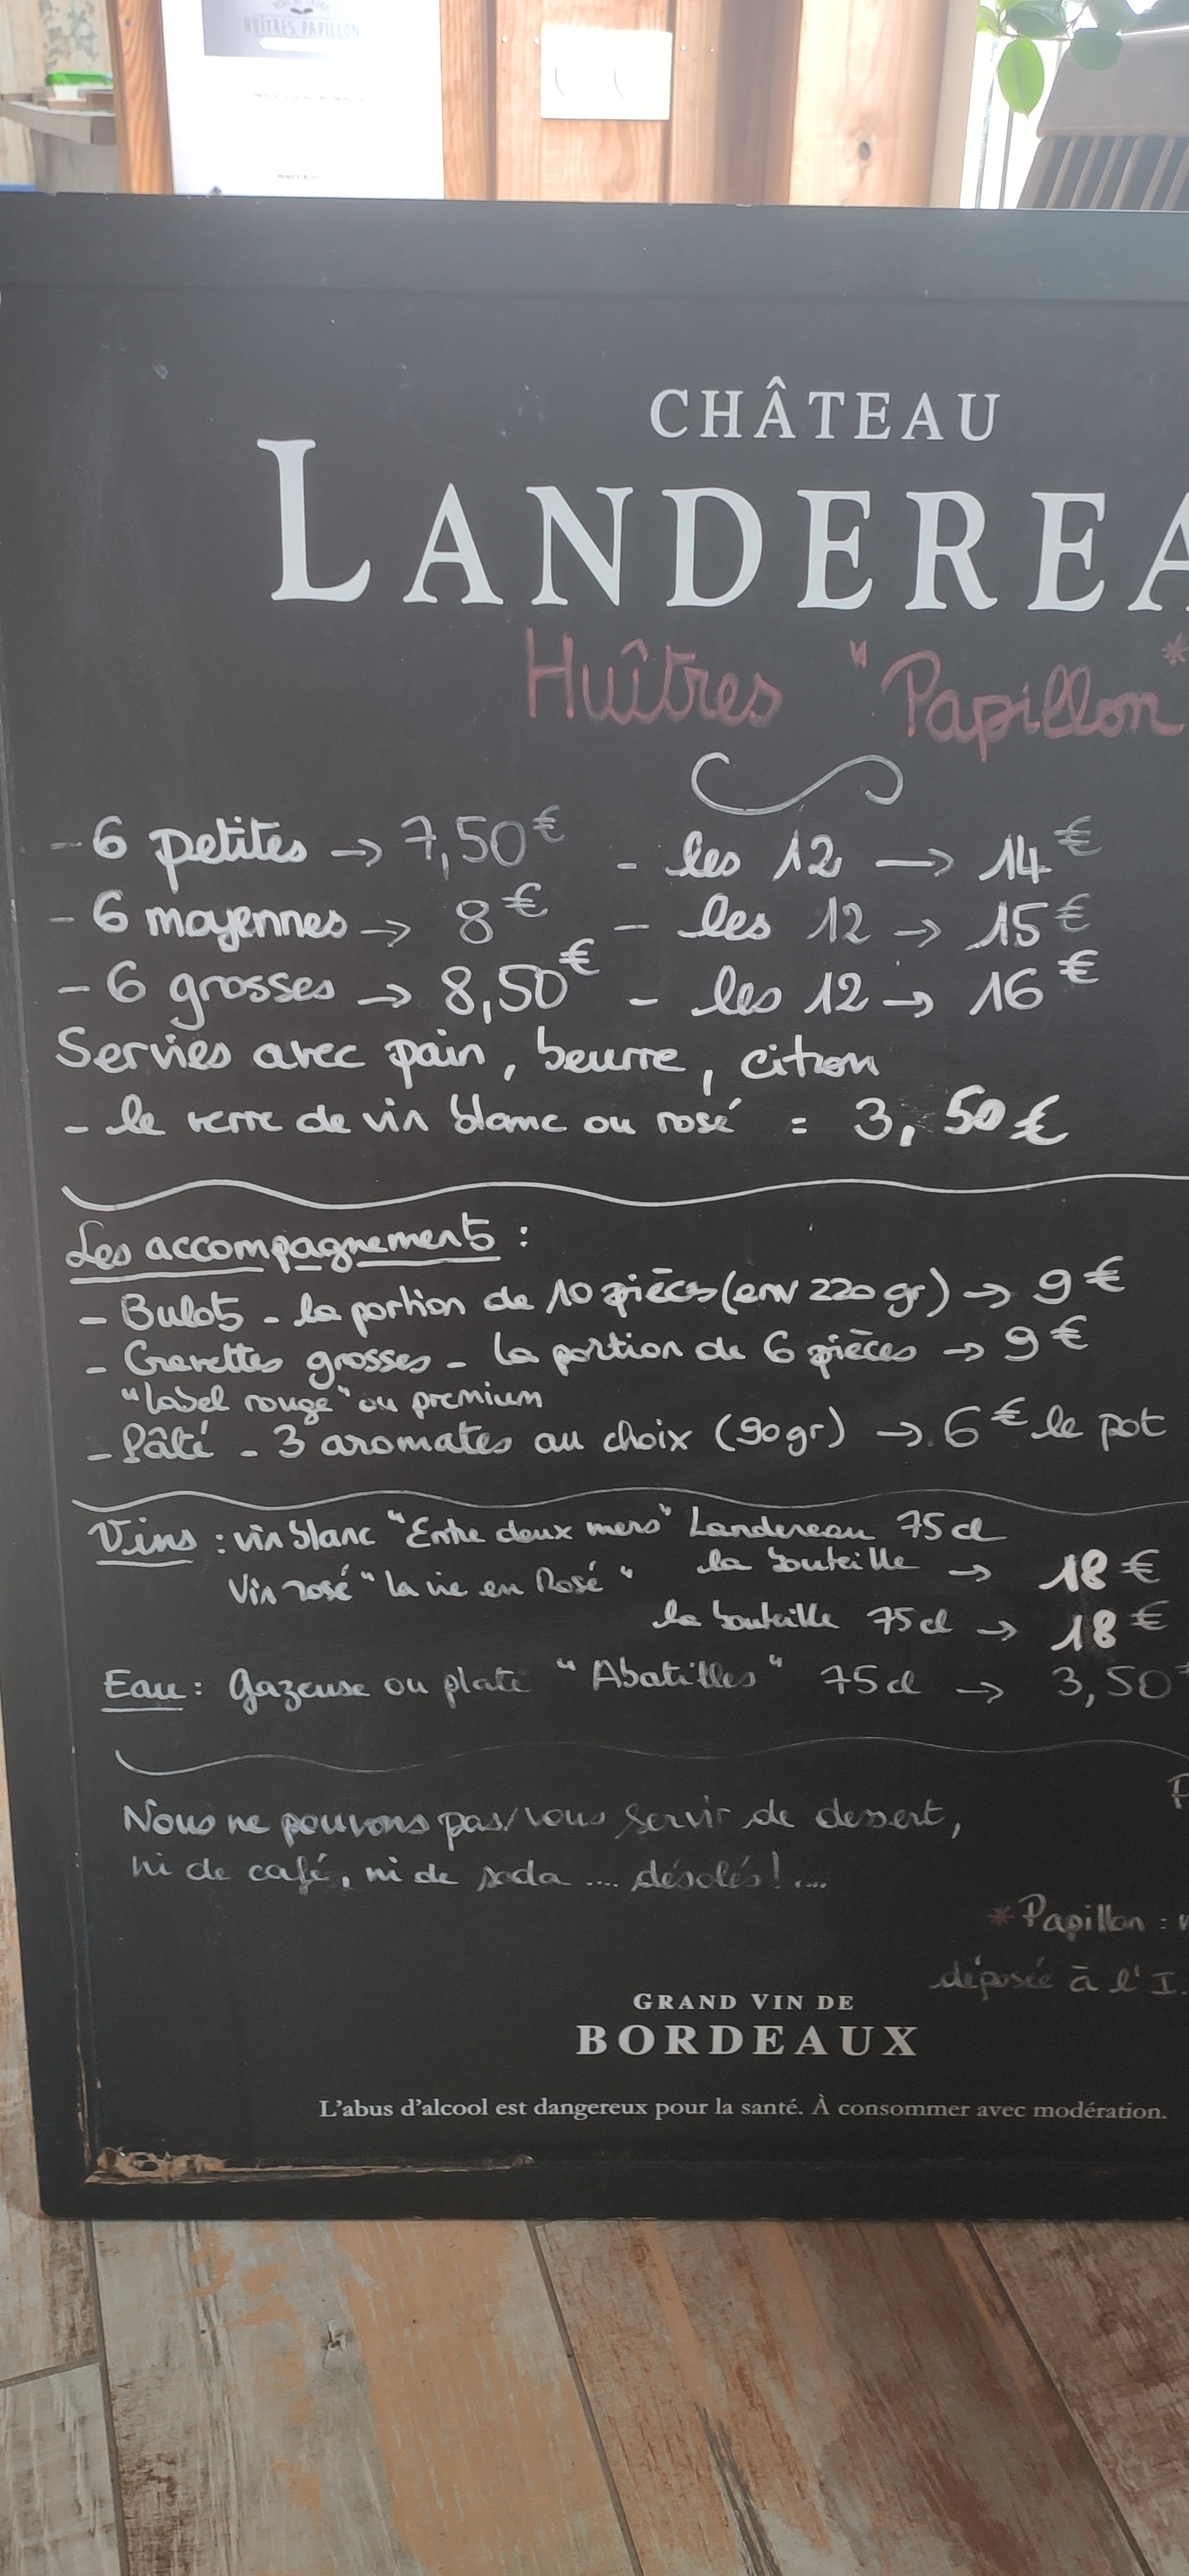 HUÎTRES PAPILLON
CHÂTEAU
LANDEREA
Huîtres "Papillon"*
- 6 petites → 7,50€ - les 12 → 14€
- 6 moyennes → 8€ - les 12 → 15€
- 6 grosses → 8,50€ - les 12 → 16€
Servies avec pain, beurre, citron
- le verre de vin blanc ou rosé = 3,50€
Les accompagnements :
- Bulots - la portion de 10 pièces (env 220 gr) → 9€
- Crevettes grosses - la portion de 6 pièces → 9€
"label rouge" ou premium
- Pâté - 3 aromates au choix (90gr) → 6€ le pot
Vins : vin blanc "Entre deux mers" Landereau 75cl
la bouteille → 18€
Vin rosé "la vie en Rosé"
la bouteille 75cl → 18€
Eau : Gazeuse ou plate "Abatilles" 75cl → 3,50
Nous ne pouvons pas vous servir de dessert,
ni de café, ni de soda .... désolés! ....
* Papillon :
déposée à l'I.
GRAND VIN DE
BORDEAUX
L'abus d'alcool est dangereux pour la santé. À consommer avec modération.